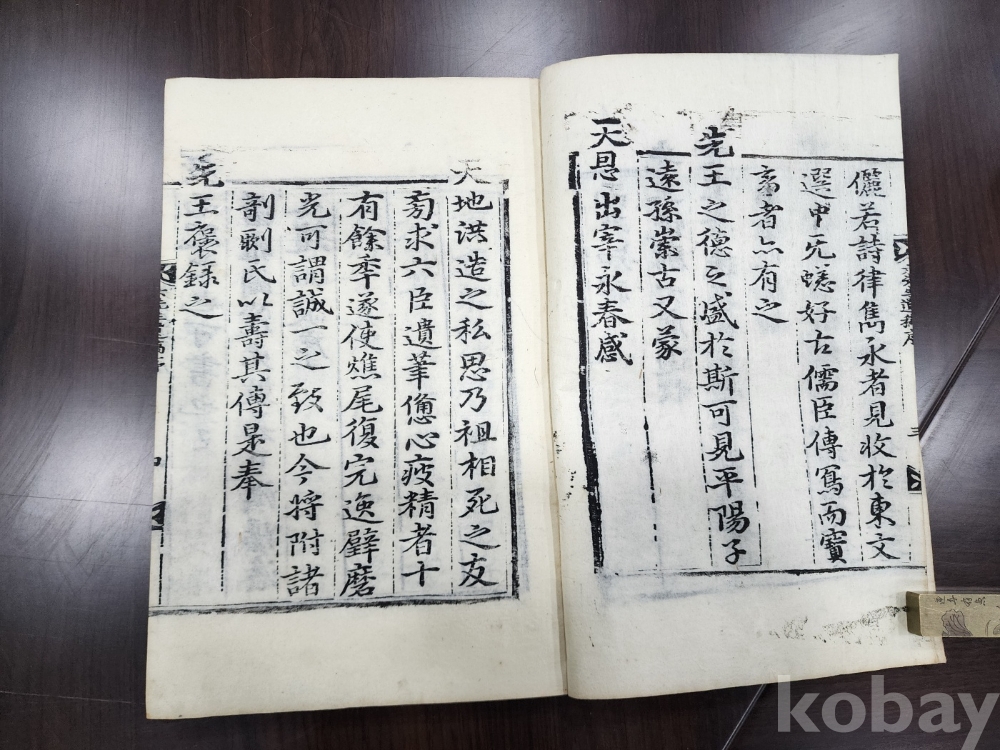 儷若詩律雋永者見收於東文
選中旡蟋好古儒臣傳寫而寶
畜者亦有之
先王之德之盛於斯可見平陽子
遠孫崇古又蒙
天恩出宰永春感
天地洪造之私思乃祖相死之友
旁求六臣遺筆憊心疲精者十
有餘秊遂使燋尾復完逸璧磨
光可謂誠一之致也今將附諸
剞劂氏以壽其傳是奉
先王褒錄之
kobay